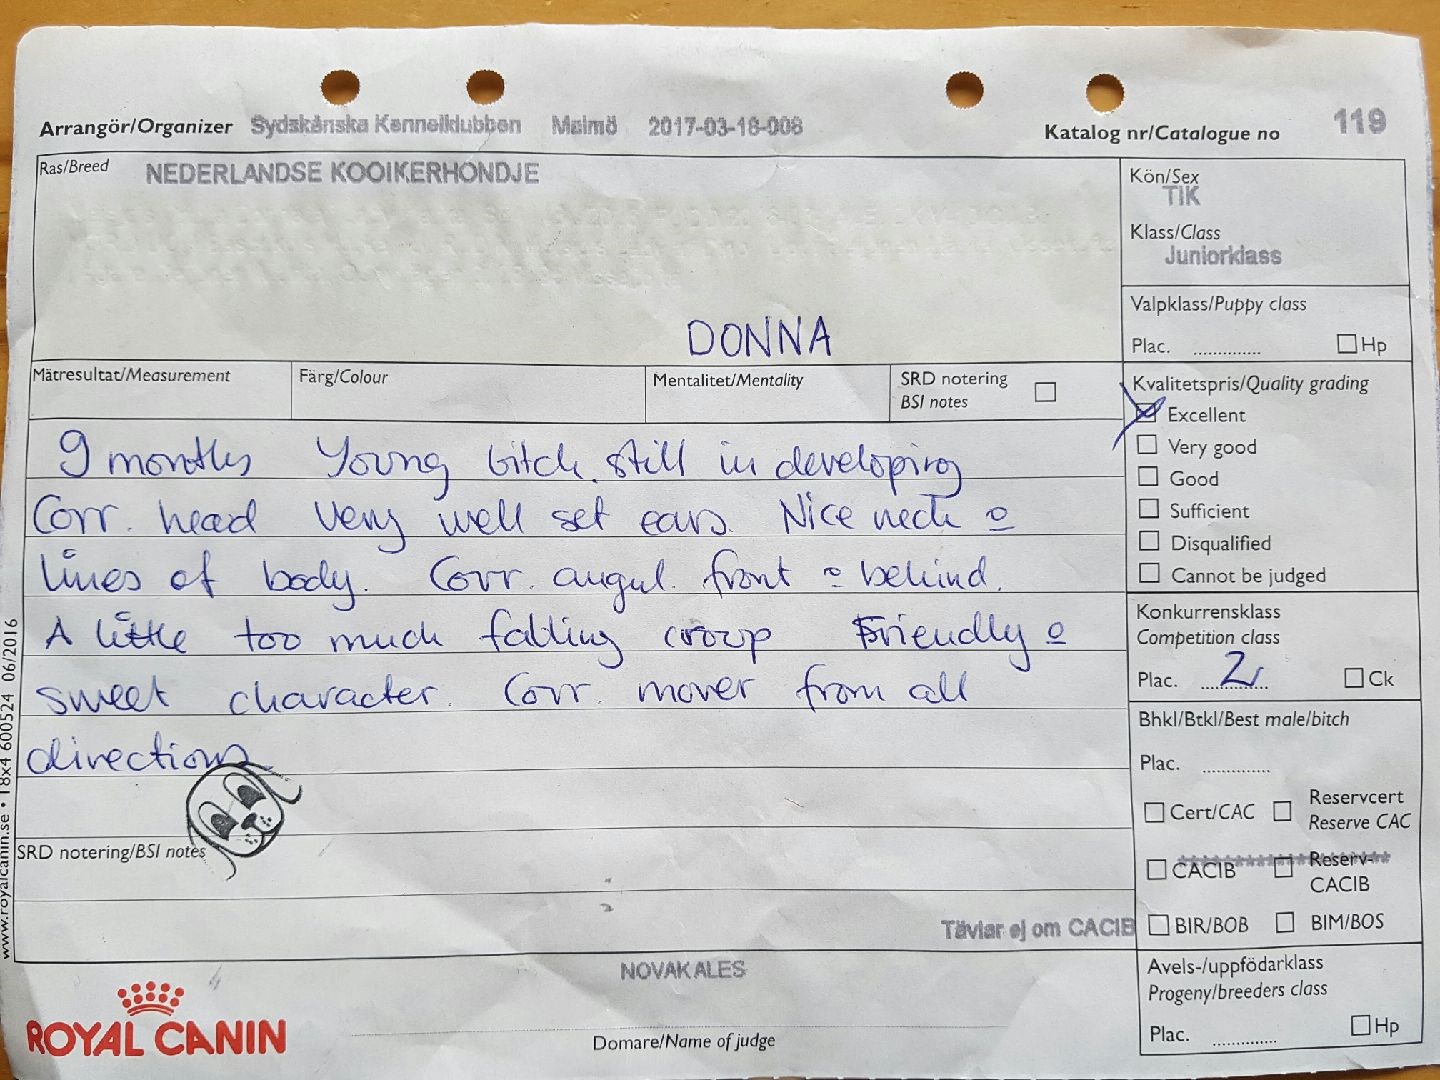 Arrangör/Organizer Sydskånska Kennelklubben Malmö 2017-03-18-008
Katalog nr/Catalogue no 119
Ras/Breed NEDERLANDSE KOOIKERHONDJE
DONNA
Kön/Sex
TIK
Klass/Class
Juniorklass
Valpklass/Puppy class
Plac. .............. Hp
Mätresultat/Measurement
Färg/Colour
Mentalitet/Mentality
SRD notering
BSI notes
Kvalitetspris/Quality grading
Excellent
Very good
Good
Sufficient
Disqualified
Cannot be judged
9 months Young bitch still in developing
Corr. head Very well set ears. Nice neck o
lines of body. Corr. angul. front o behind.
A little too much falling croup Friendly o
sweet character. Corr. mover from all
directions
Konkurrensklass
Competition class
Plac. 2 Ck
Bhkl/Btkl/Best male/bitch
Plac. ..............
Cert/CAC
Reservcert
Reserve CAC
CACIB
Reserv-
CACIB
BIR/BOB
BIM/BOS
SRD notering/BSI notes
Tävlar ej om CACIB
Avels-/uppfödarklass
Progeny/breeders class
Plac. .............. Hp
NOVAK ALES
Domare/Name of judge
ROYAL CANIN
www.royalcanin.se • T8x4 600524 06/2016